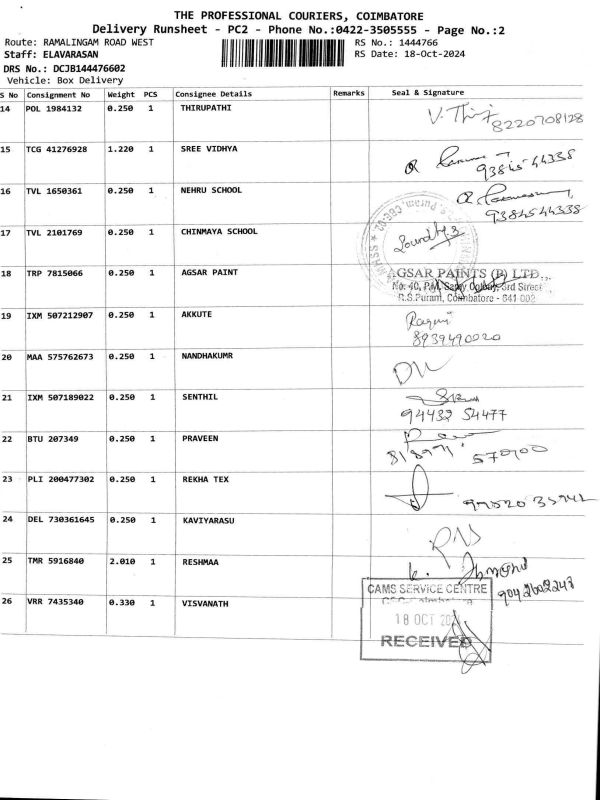 THE PROFESSIONAL COURIERS, COIMBATORE
Delivery Runsheet - PC2 - Phone No.:0422-3505555 - Page No.:2
Route: RAMALINGAM ROAD WEST
RS No.: 1444766
Staff: ELAVARASAN
RS Date: 18-Oct-2024
DRS No.: DCJB144476602
Vehicle: Box Delivery
S No Consignment No Weight PCS Consignee Details Remarks Seal & Signature
14 POL 1984132 0.250 1 THIRUPATHI
8220708128
15 TCG 41276928 1.220 1 SREE VIDHYA
9384544338
16 TVL 1650361 0.250 1 NEHRU SCHOOL
9384544338
17 TVL 2101769 0.250 1 CHINMAYA SCHOOL
18 TRP 7815066 0.250 1 AGSAR PAINT
AGSAR PAINTS (P) LTD.,
No: 40, P.M. Samy Colony, 3rd Street
R.S.Puram, Coimbatore - 641 002
19 IXM 507212907 0.250 1 AKKUTE
8939490020
20 MAA 575762673 0.250 1 NANDHAKUMR
21 IXM 507189022 0.250 1 SENTHIL
94432 54477
22 BTU 207349 0.250 1 PRAVEEN
23 PLI 200477302 0.250 1 REKHA TEX
24 DEL 730361645 0.250 1 KAVIYARASU
25 TMR 5916840 2.010 1 RESHMAA
CAMS SERVICE CENTRE
26 VRR 7435340 0.330 1 VISVANATH
18 OCT
RECEIVED